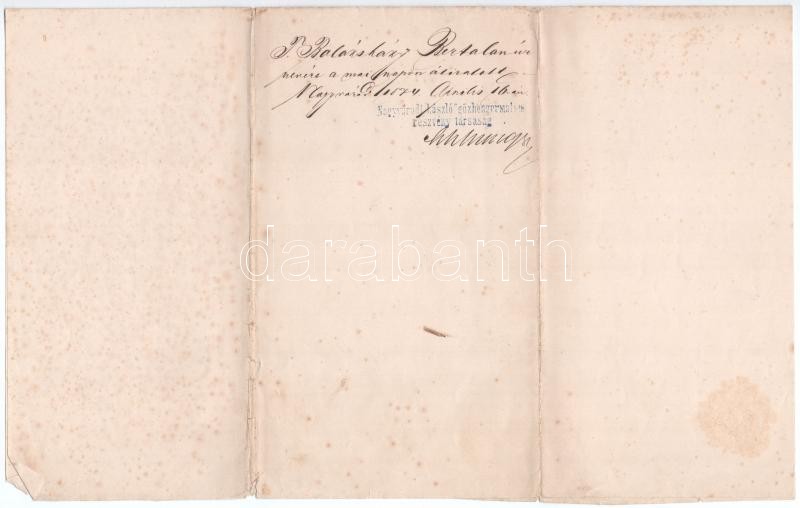 T. Balásházy Bertalan úr
nevére a mai napon átiratott
Nagyvárad 1874 16án
Nagyváradi „László" gőzhengermalom
részvény társaság
darabanth